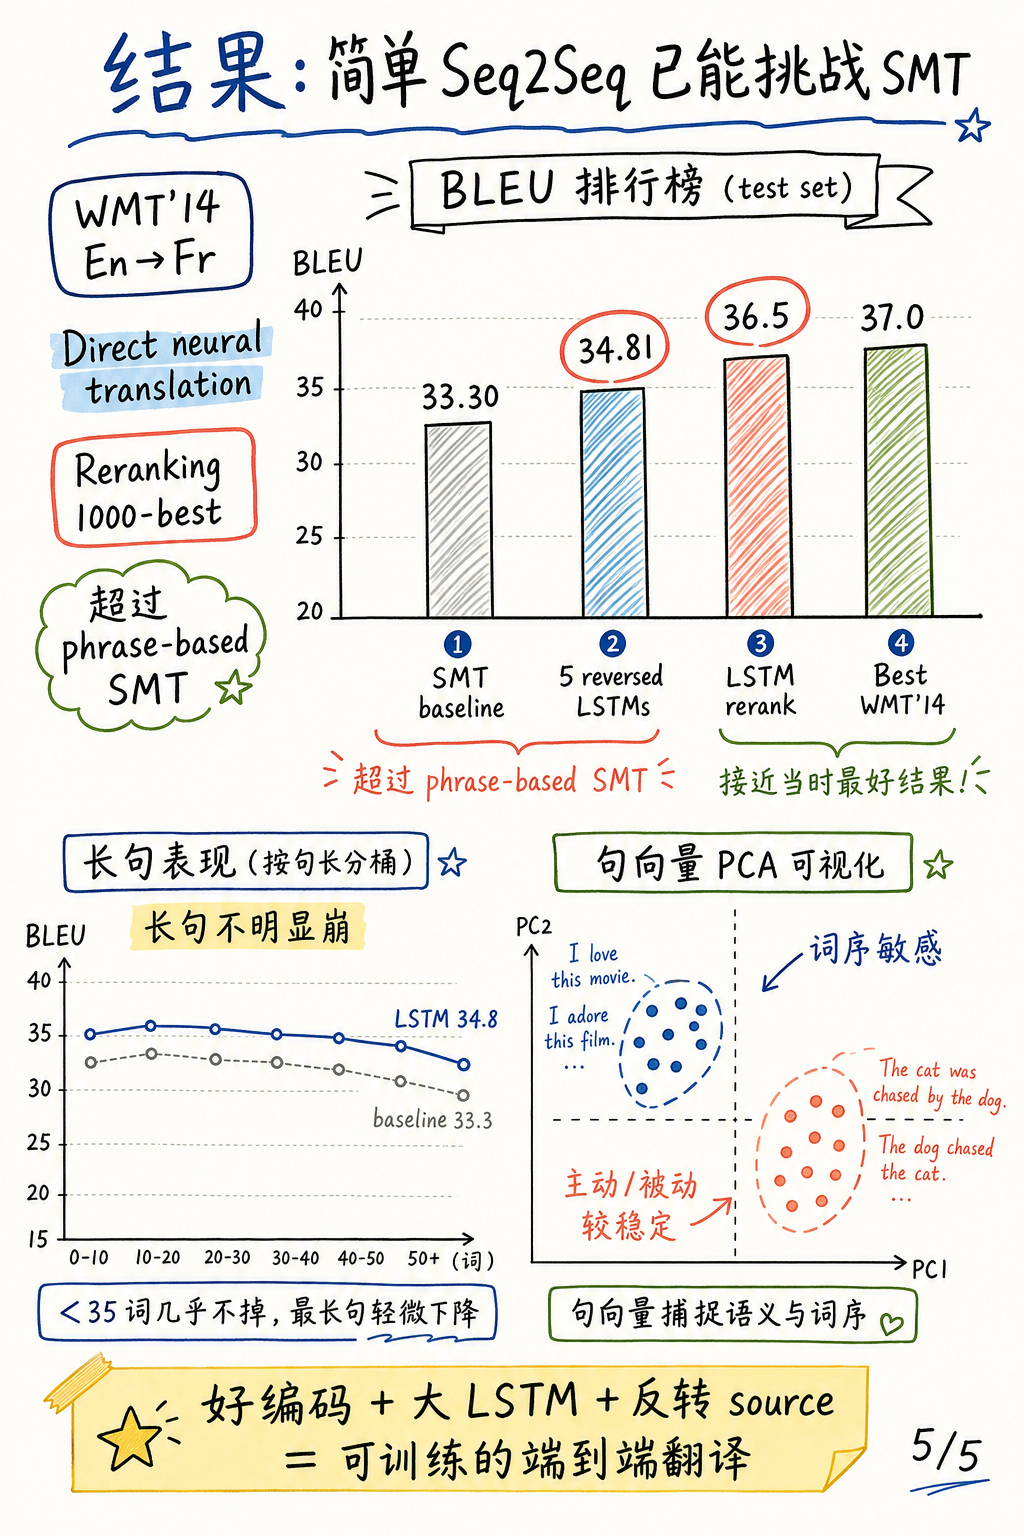 结果: 简单 Seq2Seq 已能挑战 SMT
WMT'14
En→Fr
Direct neural
translation
Reranking
1000-best
超过
phrase-based
SMT
BLEU 排行榜 (test set)
BLEU
40
35
30
25
20
33.30
34.81
36.5
37.0
1
SMT
baseline
2
5 reversed
LSTMs
3
LSTM
rerank
4
Best
WMT'14
超过 phrase-based SMT
接近当时最好结果!
长句表现 (按句长分桶)
长句不明显崩
BLEU
40
35
30
25
20
15
LSTM 34.8
baseline 33.3
0-10 10-20 20-30 30-40 40-50 50+ (词)
<35 词几乎不掉, 最长句轻微下降
句向量 PCA 可视化
PC2
I love
this movie.
I adore
this film.
...
词序敏感
The cat was
chased by the dog.
The dog chased
the cat.
...
主动/被动
较稳定
PC1
句向量捕捉语义与词序
好编码 + 大 LSTM + 反转 source
= 可训练的端到端翻译
5/5